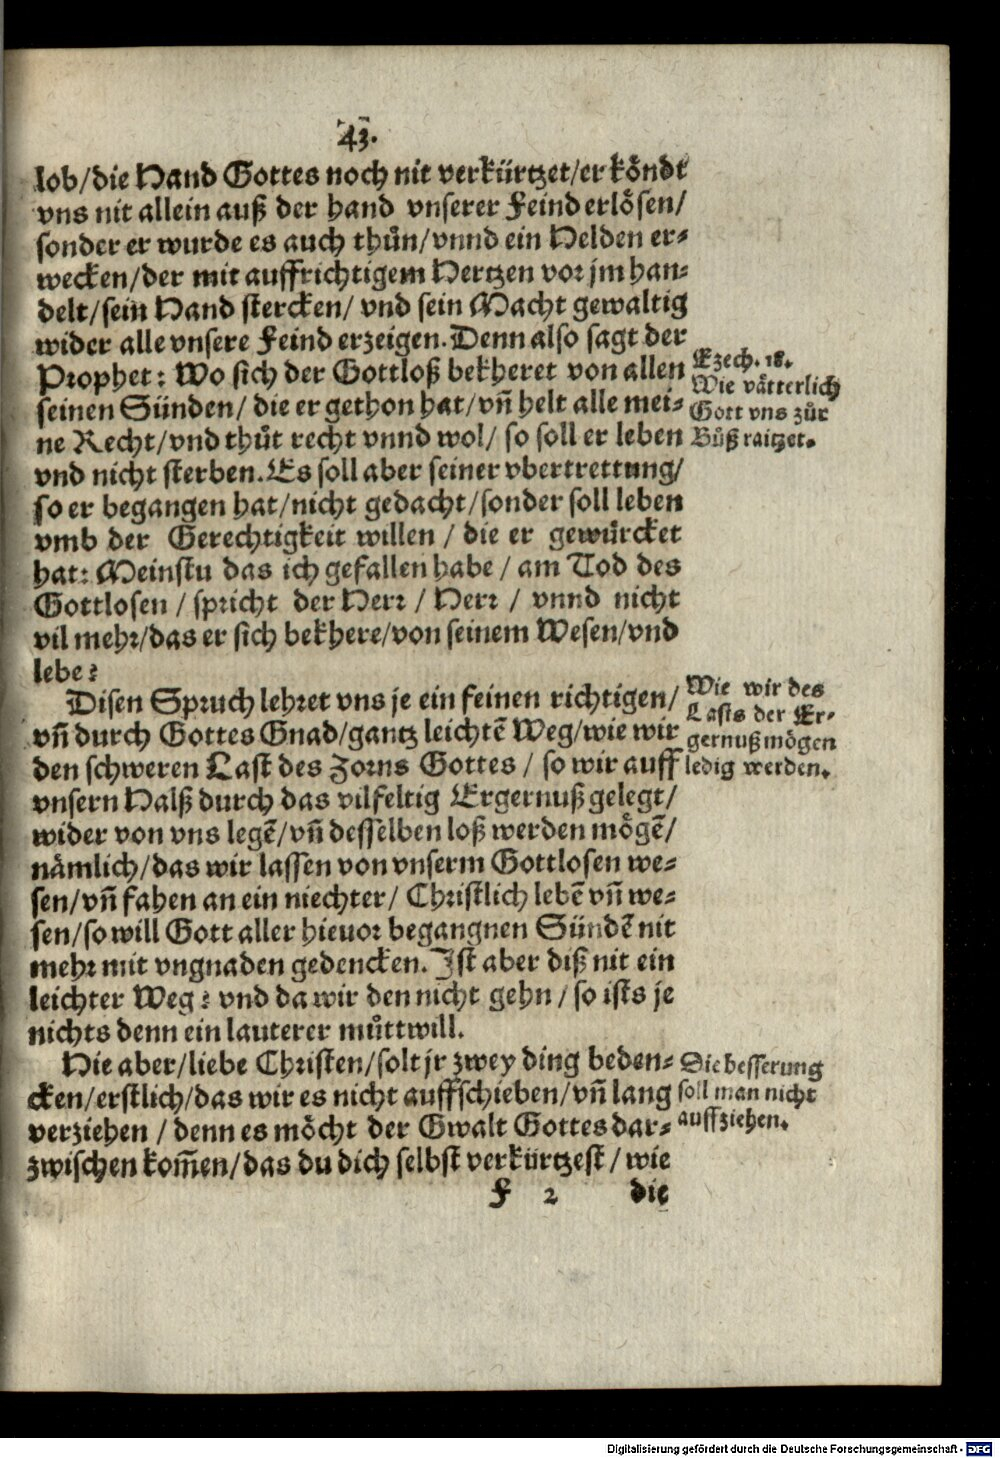 43.
lob/die Hand Gottes noch nit verkürtzet/er köndt
vns nit allein auß der hand vnserer Feind erlösen/
sonder er wurde es auch thůn/vnnd ein Helden er-
wecken/der mit auffrichtigem Hertzen vor jm han-
delt/sein Hand stercken/ vnd sein Macht gewaltig
wider alle vnsere Feind erzeigen. Denn also sagt der
Prophet: Wo sich der Gottloß bekheret von allen
seinen Sünden/ die er gethon hat/vñ helt alle mei-
ne Recht/vnd thůt recht vnnd wol/ so soll er leben
vnd nicht sterben. Es soll aber seiner vbertrettung/
so er begangen hat/nicht gedacht/sonder soll leben
vmb der Gerechtigkeit willen / die er gewürcket
hat: Meinstu das ich gefallen habe / am Tod des
Gottlosen / spricht der Herr / Herr / vnnd nicht
vil mehr/das er sich bekhere/von seinem Wesen/vnd
lebe?
Ezech. 18.
Wie vätterlich
Gott vns zůr
Bůß raitzet.
Disen Spruch lehret vns je ein feinen richtigen/
vñ durch Gottes Gnad/gantz leichtẽ Weg/wie wir
den schweren Last des Zorns Gottes / so wir auff
vnsern Halß durch das vilfeltig Ergernuß gelegt/
wider von vns legẽ/vñ desselben loß werden mögẽ/
nämlich/das wir lassen von vnserm Gottlosen we-
sen/vñ fahen an ein niechter/ Christlich lebẽ vñ we-
sen/so will Gott aller hieuor begangnen Sündẽ nit
mehr mit vngnaden gedencken. Ist aber diß nit ein
leichter Weg? vnd da wir den nicht gehn / so ists je
nichts denn ein lauterer můttwill.
Wie wir des
Lasts der Er-
gernuß mögen
ledig werden.
Hie aber/liebe Christen/solt jr zwey ding beden-
cken/erstlich/das wir es nicht auffschieben/vñ lang
verziehen / denn es möcht der Gwalt Gottes dar-
zwischen kom̃en/das du dich selbst verkürtzest / wie
Die besserung
soll man nicht
auffziehen.
F 2 die
Digitalisierung gefördert durch die Deutsche Forschungsgemeinschaft - DFG